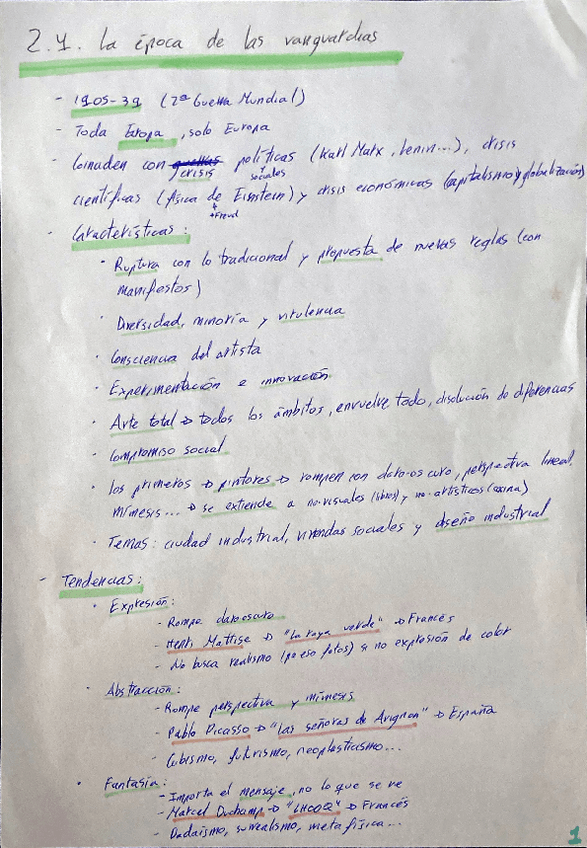 2.4. La época de las vanguardias
- 1905-39 (2ª Guerra Mundial)
- Toda Europa, solo Europa
- Coinciden con crisis políticas (Karl Marx, Lenin...), crisis
sociales
científicas (física de Einstein) y crisis económicas (capitalismo y globalización)
+ Freud
- Características:
· Ruptura con lo tradicional y propuesta de nuevas reglas (con
manifiestos)
· Diversidad, minoría y virulencia
· Consciencia del artista
· Experimentación e innovación
· Arte total → todos los ámbitos, envuelve todo, disolución de diferencias
· Compromiso social
· Los primeros → pintores → rompen con claro-oscuro, perspectiva lineal,
mímesis... → se extiende a no-visuales (libros) y no-artísticos (cocina)
· Temas: ciudad industrial, viviendas sociales y diseño industrial
- Tendencias:
· Expresión:
- Rompe claroscuro
- Henri Mattise → "La raya verde" → Francés
- No busca realismo (pa eso fotos) si no explosión de color
· Abstracción:
- Rompe perspectiva y mímesis
- Pablo Picasso → "Las señoras de Avignon" → España
- Cubismo, futurismo, neoplasticismo...
· Fantasía:
- Importa el mensaje, no lo que se ve
- Marcel Duchamp → "LHOOQ" → Francés
- Dadaísmo, surrealismo, metafísica...
1